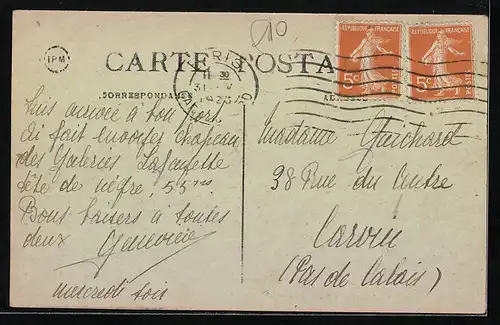 IPM
CARTE POSTA
CORRESPONDANCE
ADRESSE
PARIS
11 30
REPUBLIQUE FRANÇAISE
5c
POSTES
REPUBLIQUE FRANÇAISE
5c
POSTES
Suis arrivée à bon port
ai fait envoyer chapeau
des Galeries Lafayette
tête de nègre, 55
Bons baisers à toutes
deux Geneviève
mercredi soir
Madame Guichard
38 Rue du Centre
Carvin
(Pas de Calais)